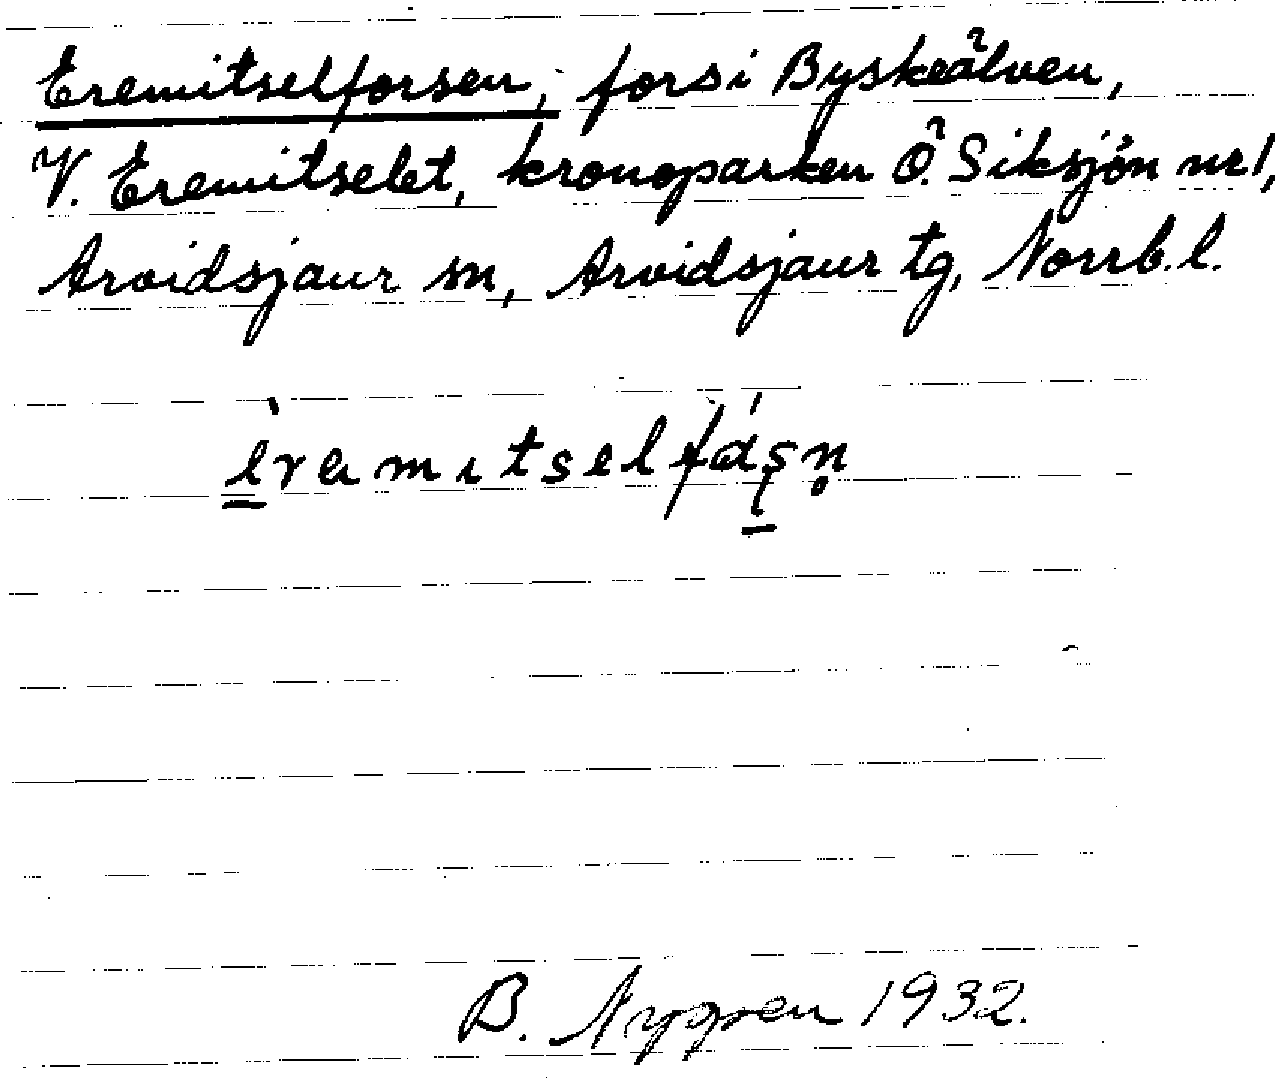 Eremitselforsen, fors i Byskeälven,
V. Eremitselet, kronoparken Ö. Siksjön nr 1,
Arvidsjaur sn, Arvidsjaur tg, Norrb. l.
èremitselfásṇ
B. Nygren 1932.